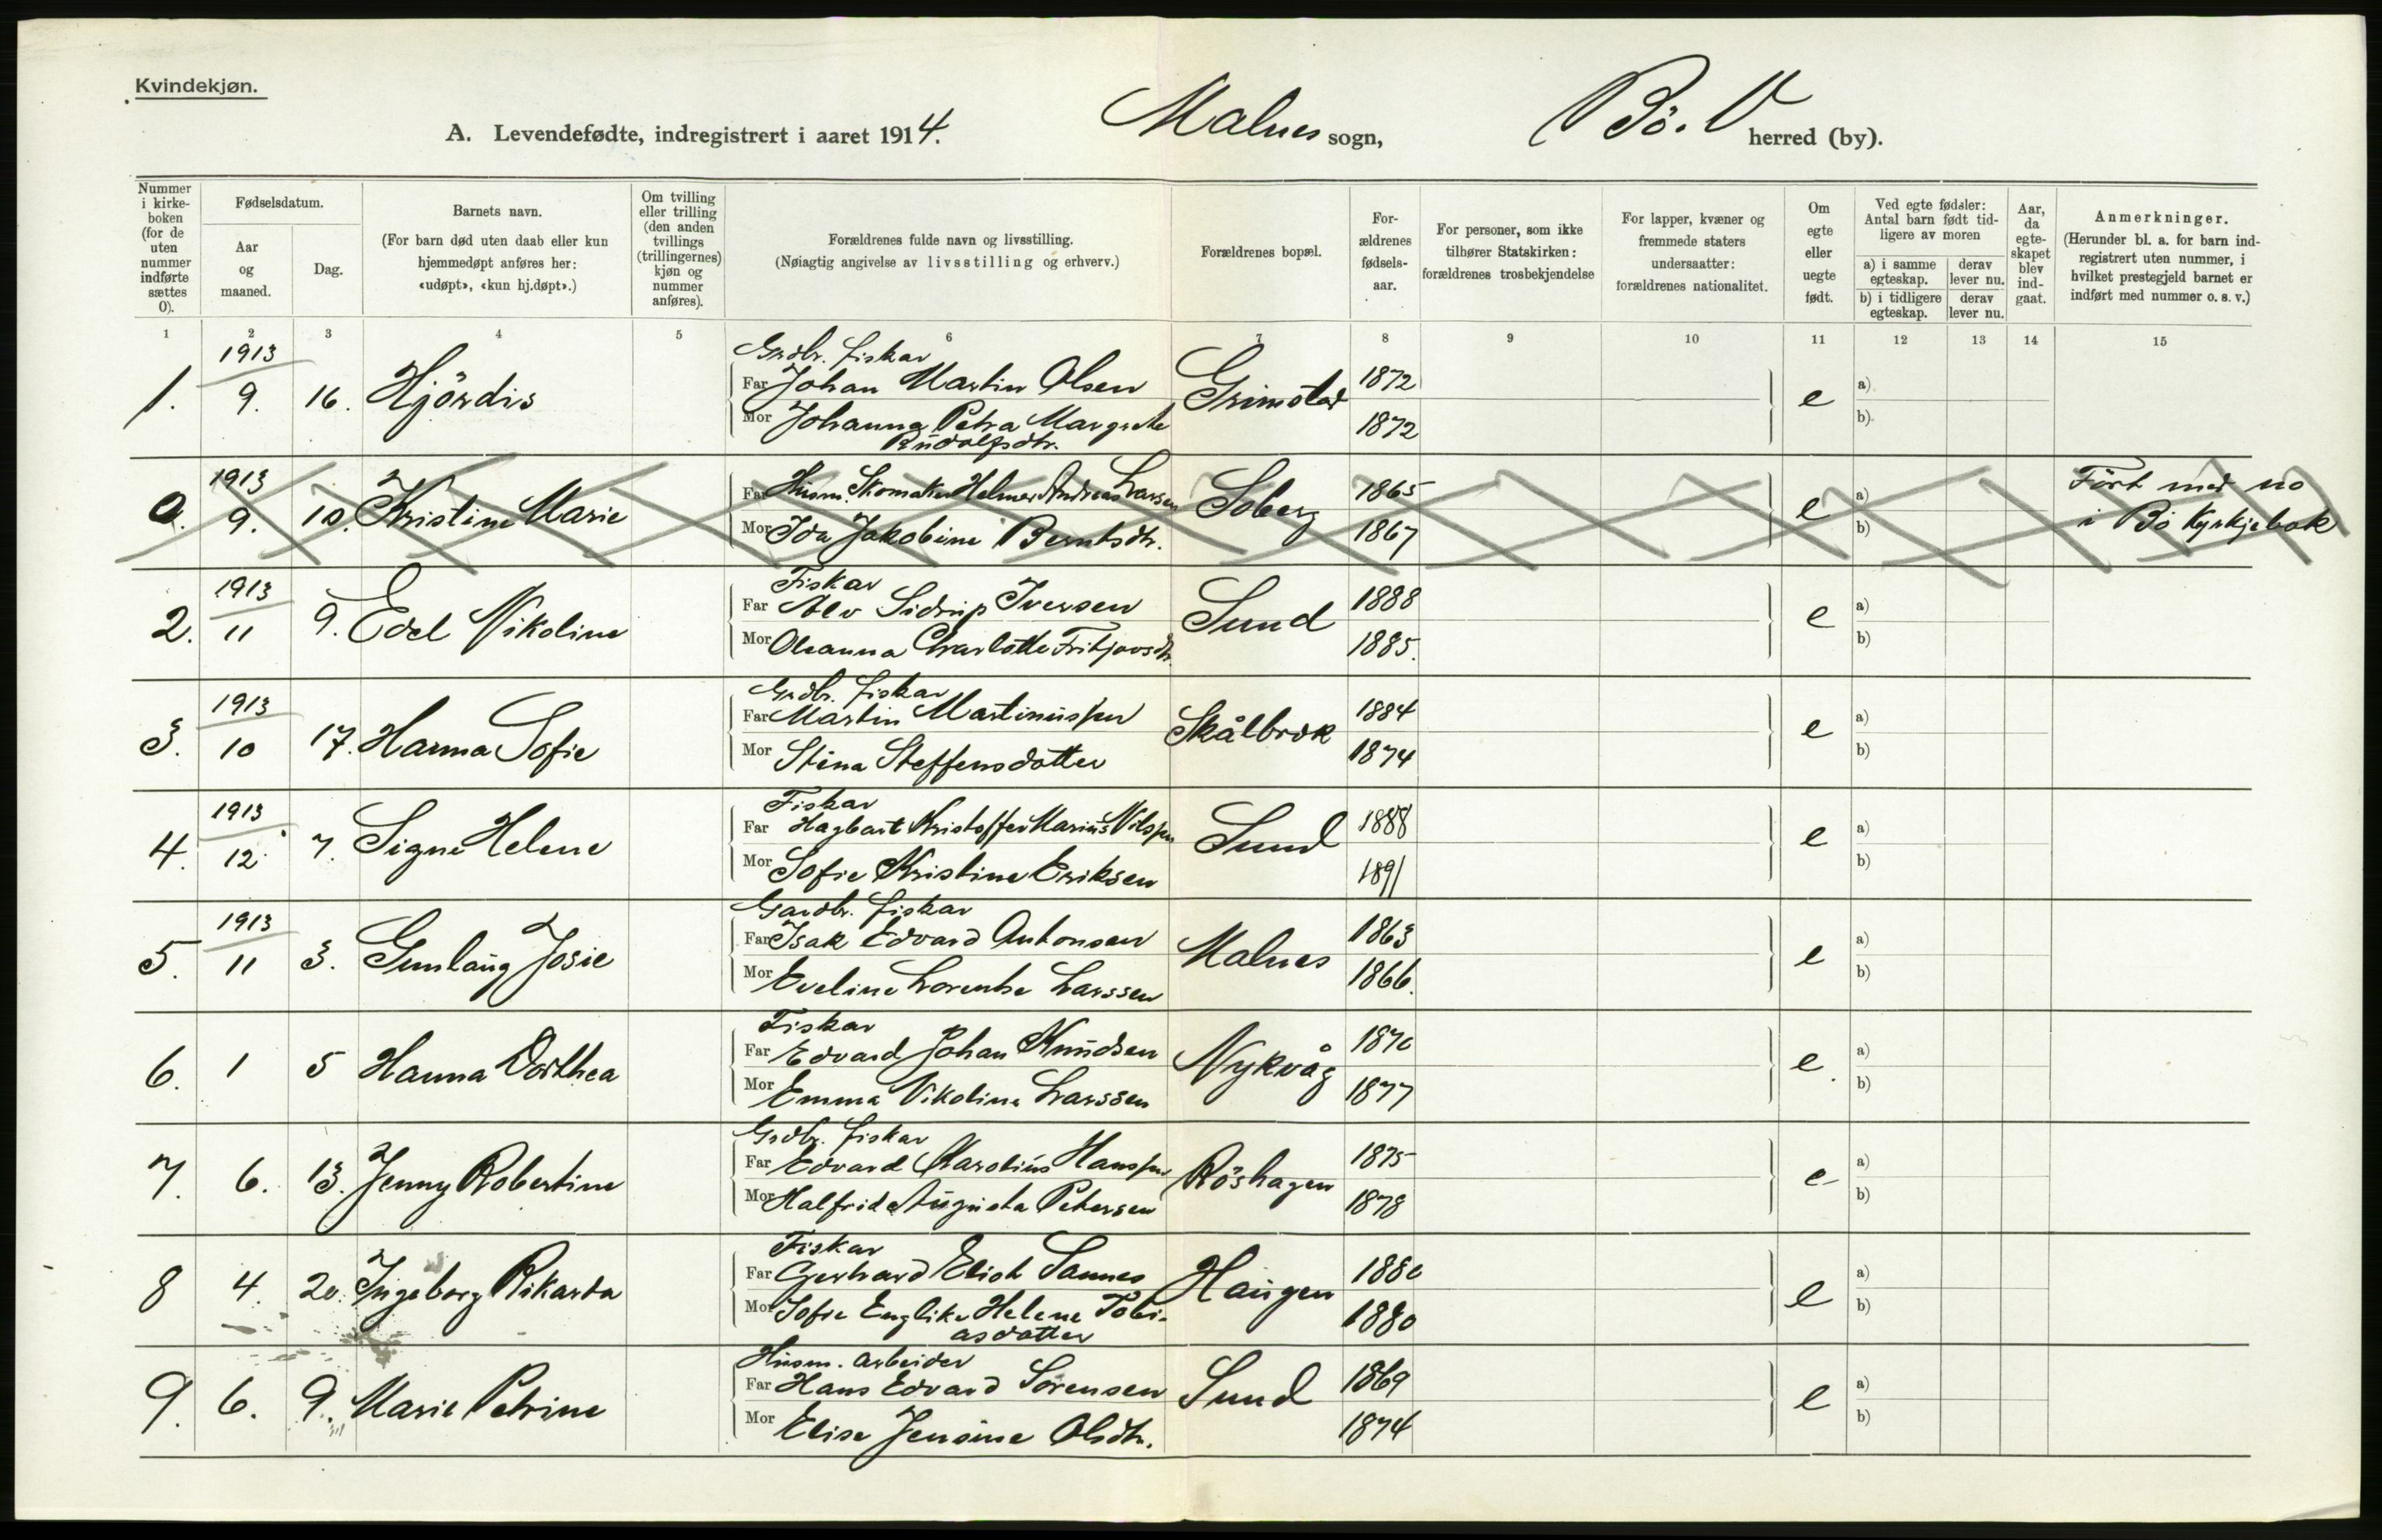 Kvindekjøn.
A. Levendefødte, indregistrert i aaret 1914. Malnes sogn, Bö. V herred (by).
Nummer i kirkeboken (for de uten nummer indførte sættes 0).
Fødselsdatum.
Aar og maaned.
Dag.
Barnets navn.
(For barn død uten daab eller kun hjemmedøpt anføres her: «udøpt», «kun hj.døpt».)
Om tvilling eller trilling (den anden tvillings (trillingernes) kjøn og nummer anføres).
Forældrenes fulde navn og livsstilling.
(Nøiagtig angivelse av livsstilling og erhverv.)
Forældrenes bopæl.
Forældrenes fødselsaar.
For personer, som ikke tilhører Statskirken: forældrenes trosbekjendelse
For lapper, kvæner og fremmede staters undersaatter: forældrenes nationalitet.
Om egte eller uegte født.
Ved egte fødsler: Antal barn født tidligere av moren
a) i samme egteskap.
derav lever nu.
b) i tidligere egteskap.
derav lever nu.
Aar, da egteskapet blev indgaat.
Anmerkninger.
(Herunder bl. a. for barn indregistrert uten nummer, i hvilket prestegjeld barnet er indført med nummer o. s. v.)
1 2 3 4 5 6 7 8 9 10 11 12 13 14 15
1913 Grdbr. fiskar
1. 9. 16. Hjördis Far Johan Martin Olsen Grimstad 1872 e a)
Mor Johanna Petra Margrete 1872 b)
Rudolfsdtr.
1913 Far Husm. Skomaker Helmer Andreas Larsen 1865 a) Fört med no
0. 9. 10. Kristine Marie Soberg e
Mor Ida Jakobine Berntsdtr. 1867 b) i Bö Kyrkjebok
1913 Fiskar
2. 11 9. Edel Nikoline Far Alv Sidrup Iversen Sund 1888 e a)
Mor Oleanna Charlotte Fritjovsdtr. 1885. b)
1913 Grdbr. fiskar
3. 10 17. Hanna Sofie Far Martin Martinussen Skålbrok 1884 e a)
Mor Stina Steffensdotter 1874 b)
1913 Fiskar
4. 12. 7. Signe Helene Far Hagbart Kristoffer Marius Nilssen Sund 1888 e a)
Mor Sofie Kristine Eriksen 1891 b)
1913 Gardbr. fiskar
5. 11 3. Gunlaug Josie Far Isak Edvard Antonsen Malnes 1863 e a)
Mor Eveline Lorentse Larssen 1866. b)
Fiskar
6. 1 5 Hanna Dorthea Far Edvard Johan Knudsen Nykvåg 1870 e. a)
Mor Emma Nikoline Larssen 1877 b)
Grdbr. fiskar
7. 6. 13. Jenny Robertine Far Edvard Karolius Hanssen Röshagen 1875 e a)
Mor Halfride Augusta Petersen 1878 b)
Fiskar
8 4. 20. Ingeborg Rikarda Far Gerhard Elish Sannes Haugen 1880 e a)
Mor Sofie Englike Helene Tobi- 1880 b)
asdotter
Husm. arbeider
9. 6. 9. Marie Petrine Far Hans Edvard Sörensen Sund 1869 e a)
Mor Elise Jensine Olsdtr. 1874 b)